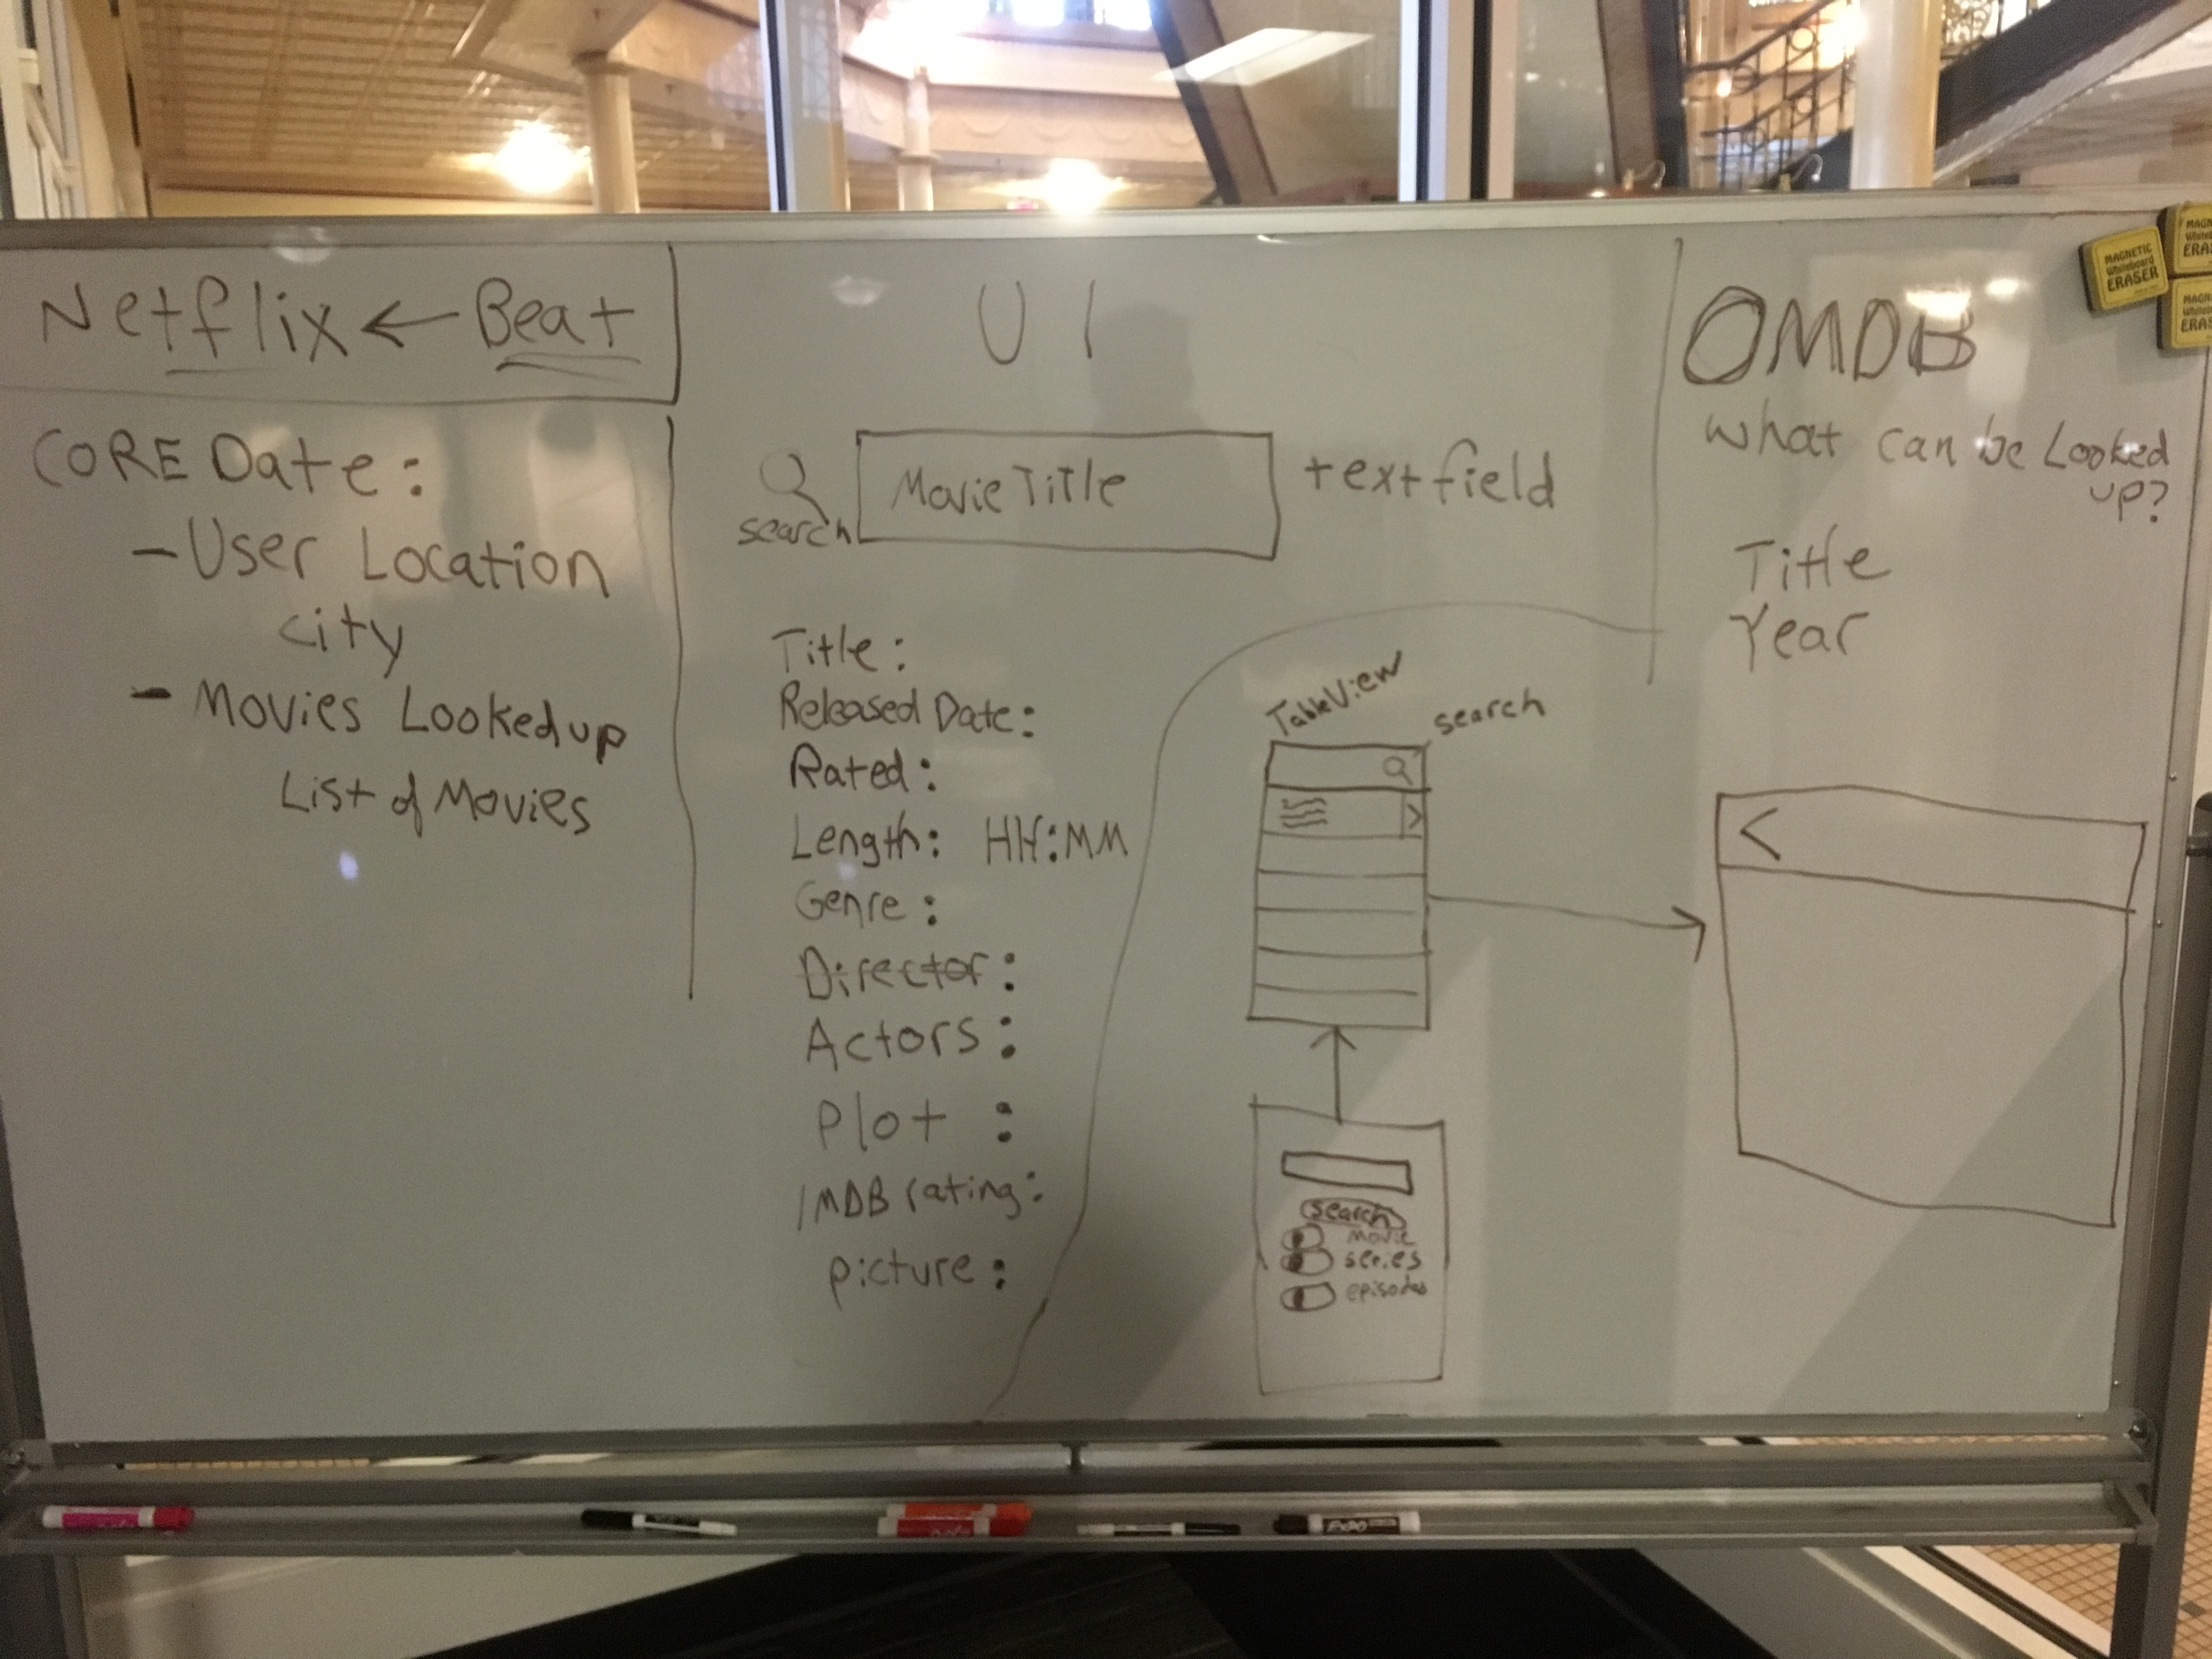 Netflix ← Beat
CORE Date:
- User Location
city
- Movies Looked up
List of Movies
UI
search
Movie Title
textfield
Title:
Released Date:
Rated:
Length: HH:MM
Genre:
Director:
Actors:
Plot :
IMDB rating:
picture:
TableView
search
search
movie
series
episodes
OMDB
what can be Looked
up?
Title
Year
<
MAGNETIC
Whiteboard
ERASER
EXPO